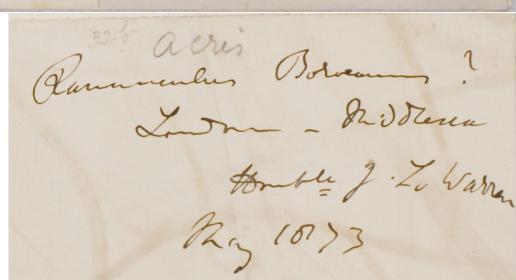 32-b acris
Ranunculus Boraeanus ?
London - Middlesex
Honble J. L. Warren
May 1873